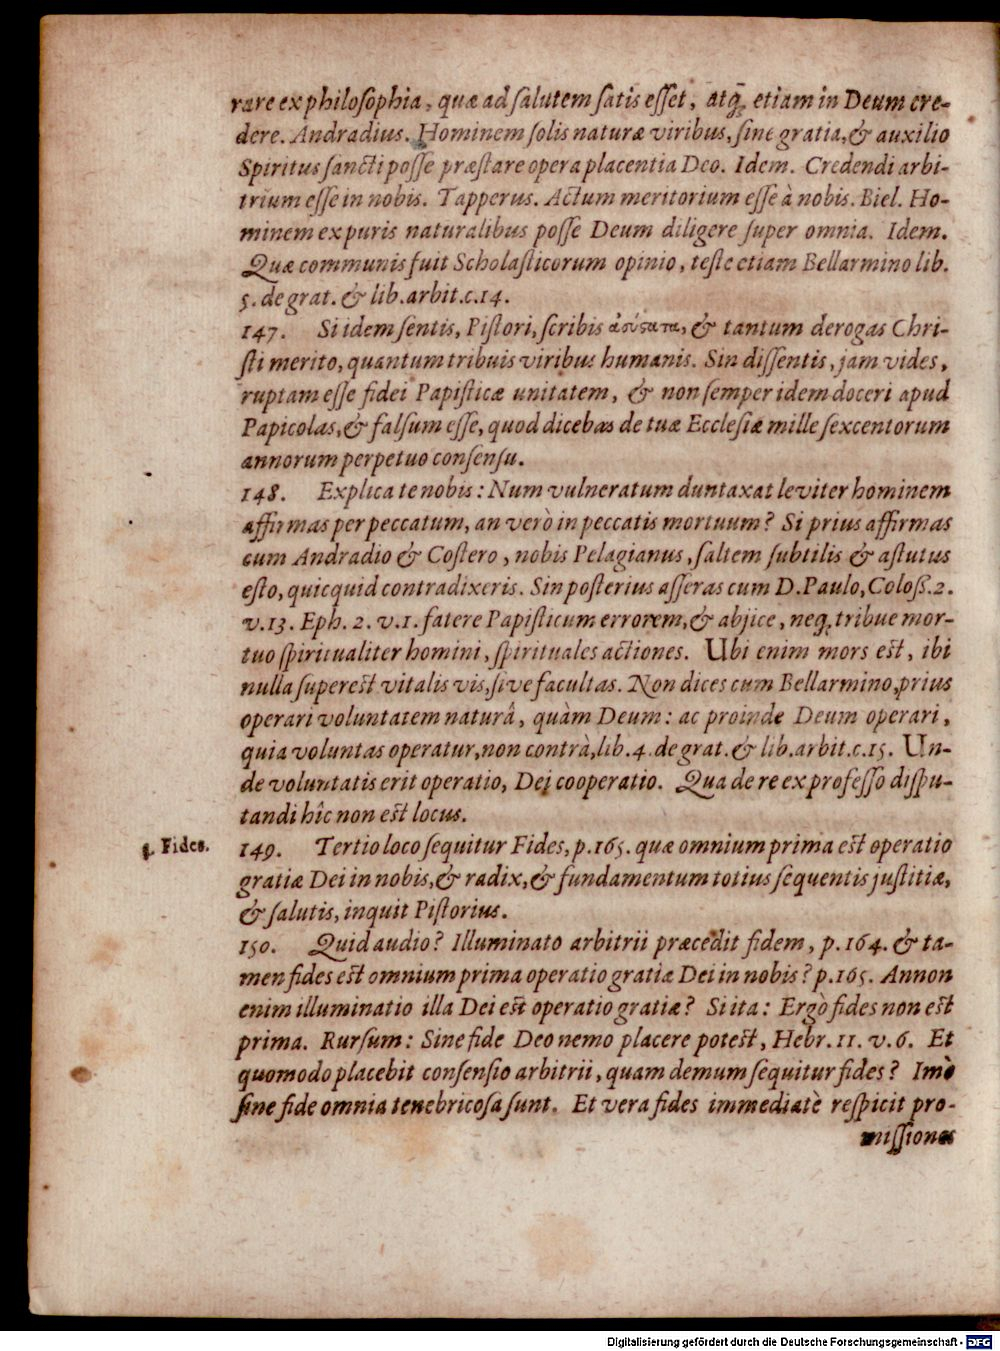 rare ex philosophia, quæ ad salutem satis esset, atq́; etiam in Deum cre-
dere. Andradius. Hominem solis naturæ viribus, sine gratia, & auxilio
Spiritus sancti posse præstare opera placentia Deo. Idem. Credendi arbi-
trium esse in nobis. Tapperus. Actum meritorium esse à nobis. Biel. Ho-
minem ex puris naturalibus posse Deum diligere super omnia. Idem.
Quæ communis fuit Scholasticorum opinio, teste etiam Bellarmino lib.
5. de grat. & lib. arbit. c. 14.
147. Si idem sentis, Pistori, scribis ἀσύστατα, & tantum derogas Chri-
sti merito, quantum tribuis viribus humanis. Sin dissentis, jam vides,
ruptam esse fidei Papisticæ unitatem, & non semper idem doceri apud
Papicolas, & falsum esse, quod dicebas de tuæ Ecclesiæ mille sexcentorum
annorum perpetuo consensu.
148. Explica te nobis: Num vulneratum duntaxat leviter hominem
affirmas per peccatum, an verò in peccatis mortuum? Si prius affirmas
cum Andradio & Costero, nobis Pelagianus, saltem subtilis & astutus
esto, quicquid contradixeris. Sin posterius asseras cum D. Paulo, Coloß. 2.
v. 13. Eph. 2. v. 1. fatere Papisticum errorem, & abjice, neq; tribue mor-
tuo spiritualiter homini, spirituales actiones. Ubi enim mors est, ibi
nulla superest vitalis vis, sive facultas. Non dices cum Bellarmino, prius
operari voluntatem naturâ, quàm Deum: ac proinde Deum operari,
quia voluntas operatur, non contrà, lib. 4. de grat. & lib. arbit. c. 15. Un-
de voluntatis erit operatio, Dei cooperatio. Qua de re ex professo dispu-
tandi hîc non est locus.
3. Fides.
149. Tertio loco sequitur Fides, p. 165. quæ omnium prima est operatio
gratiæ Dei in nobis, & radix, & fundamentum totius sequentis justitiæ,
& salutis, inquit Pistorius.
150. Quid audio? Illuminatio arbitrii præcedit fidem, p. 164. & ta-
men fides est omnium prima operatio gratiæ Dei in nobis? p. 165. Annon
enim illuminatio illa Dei est operatio gratiæ? Si ita: Ergò fides non est
prima. Rursum: Sine fide Deo nemo placere potest, Hebr. 11. v. 6. Et
quomodo placebit consensio arbitrii, quam demum sequitur fides? Imò
sine fide omnia tenebricosa sunt. Et vera fides immediatè respicit pro-
missiones
Digitalisierung gefördert durch die Deutsche Forschungsgemeinschaft - DFG